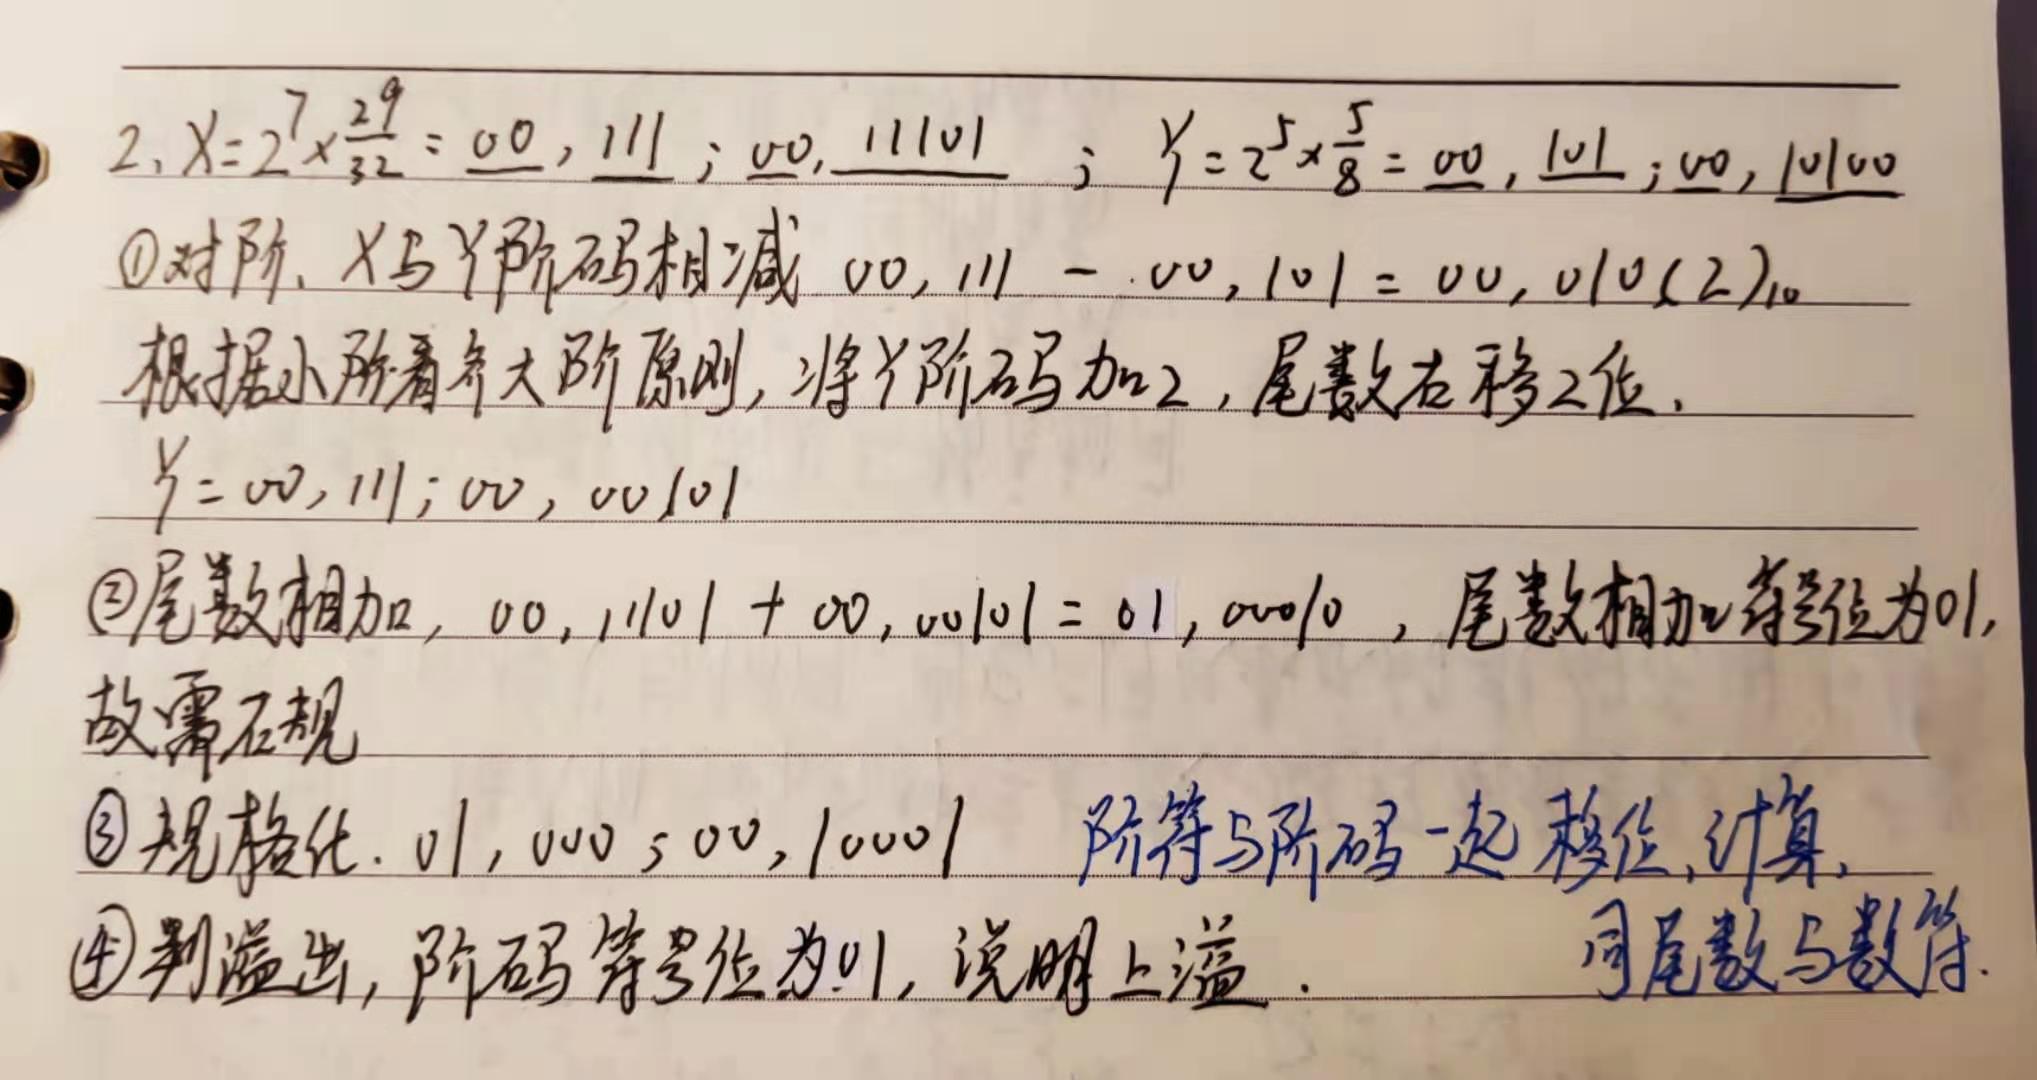 2、X=2^7×29/32=00,111;00,11101;Y=2^5×5/8=00,101;00,10100
①对阶、X与Y阶码相减 00,111-00,101=00,010(2)₁₀
根据小阶看齐大阶原则,将Y阶码加2,尾数右移2位.
Y=00,111;00,00101
②尾数相加,00,11101+00,00101=01,00010,尾数相加符号位为01,
故需右规
③规格化.01,000;00,10001 阶符与阶码一起移位、计算,
同尾数与数符.
④判溢出,阶码符号位为01,说明上溢.